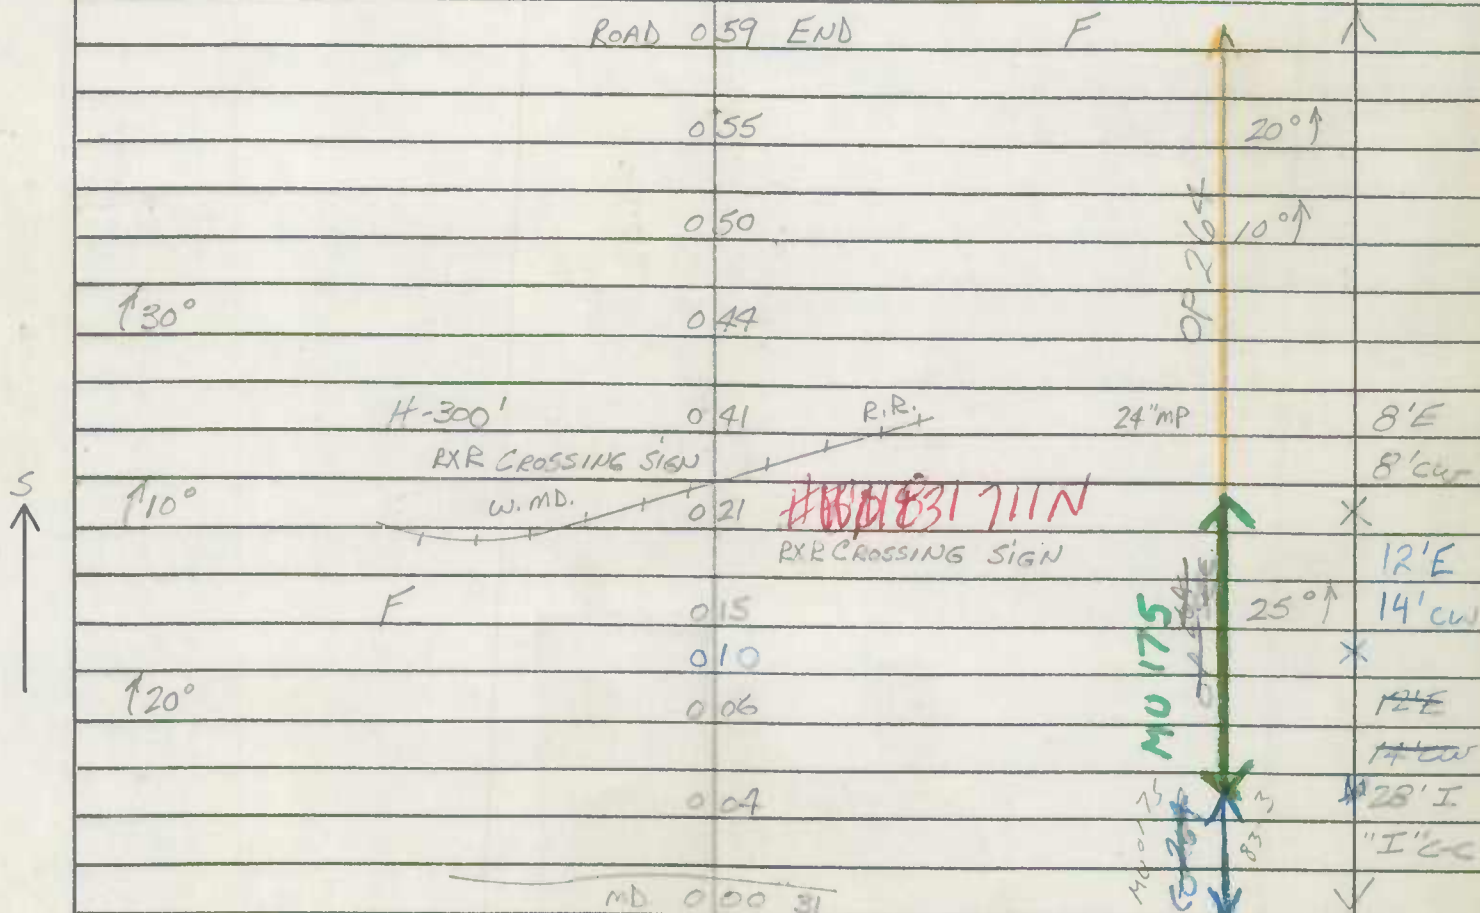 ROAD 0 59 END F
0 55 20°↑
0 50 10°↑
OP 264
↑30° 0 44
H-300' 0 41 R.R. 24"MP 8'E
RXR CROSSING SIGN 8'CW
S
↑10° W. MD. 0 21 831 711N X
RXR CROSSING SIGN 12'E
F 0 15 25°↑ 14'CW
0 10 X
MU 175
↑20° 0 06 12'E
14'CW
0 04 28' I
"I" C-C
MD. 0 00 31